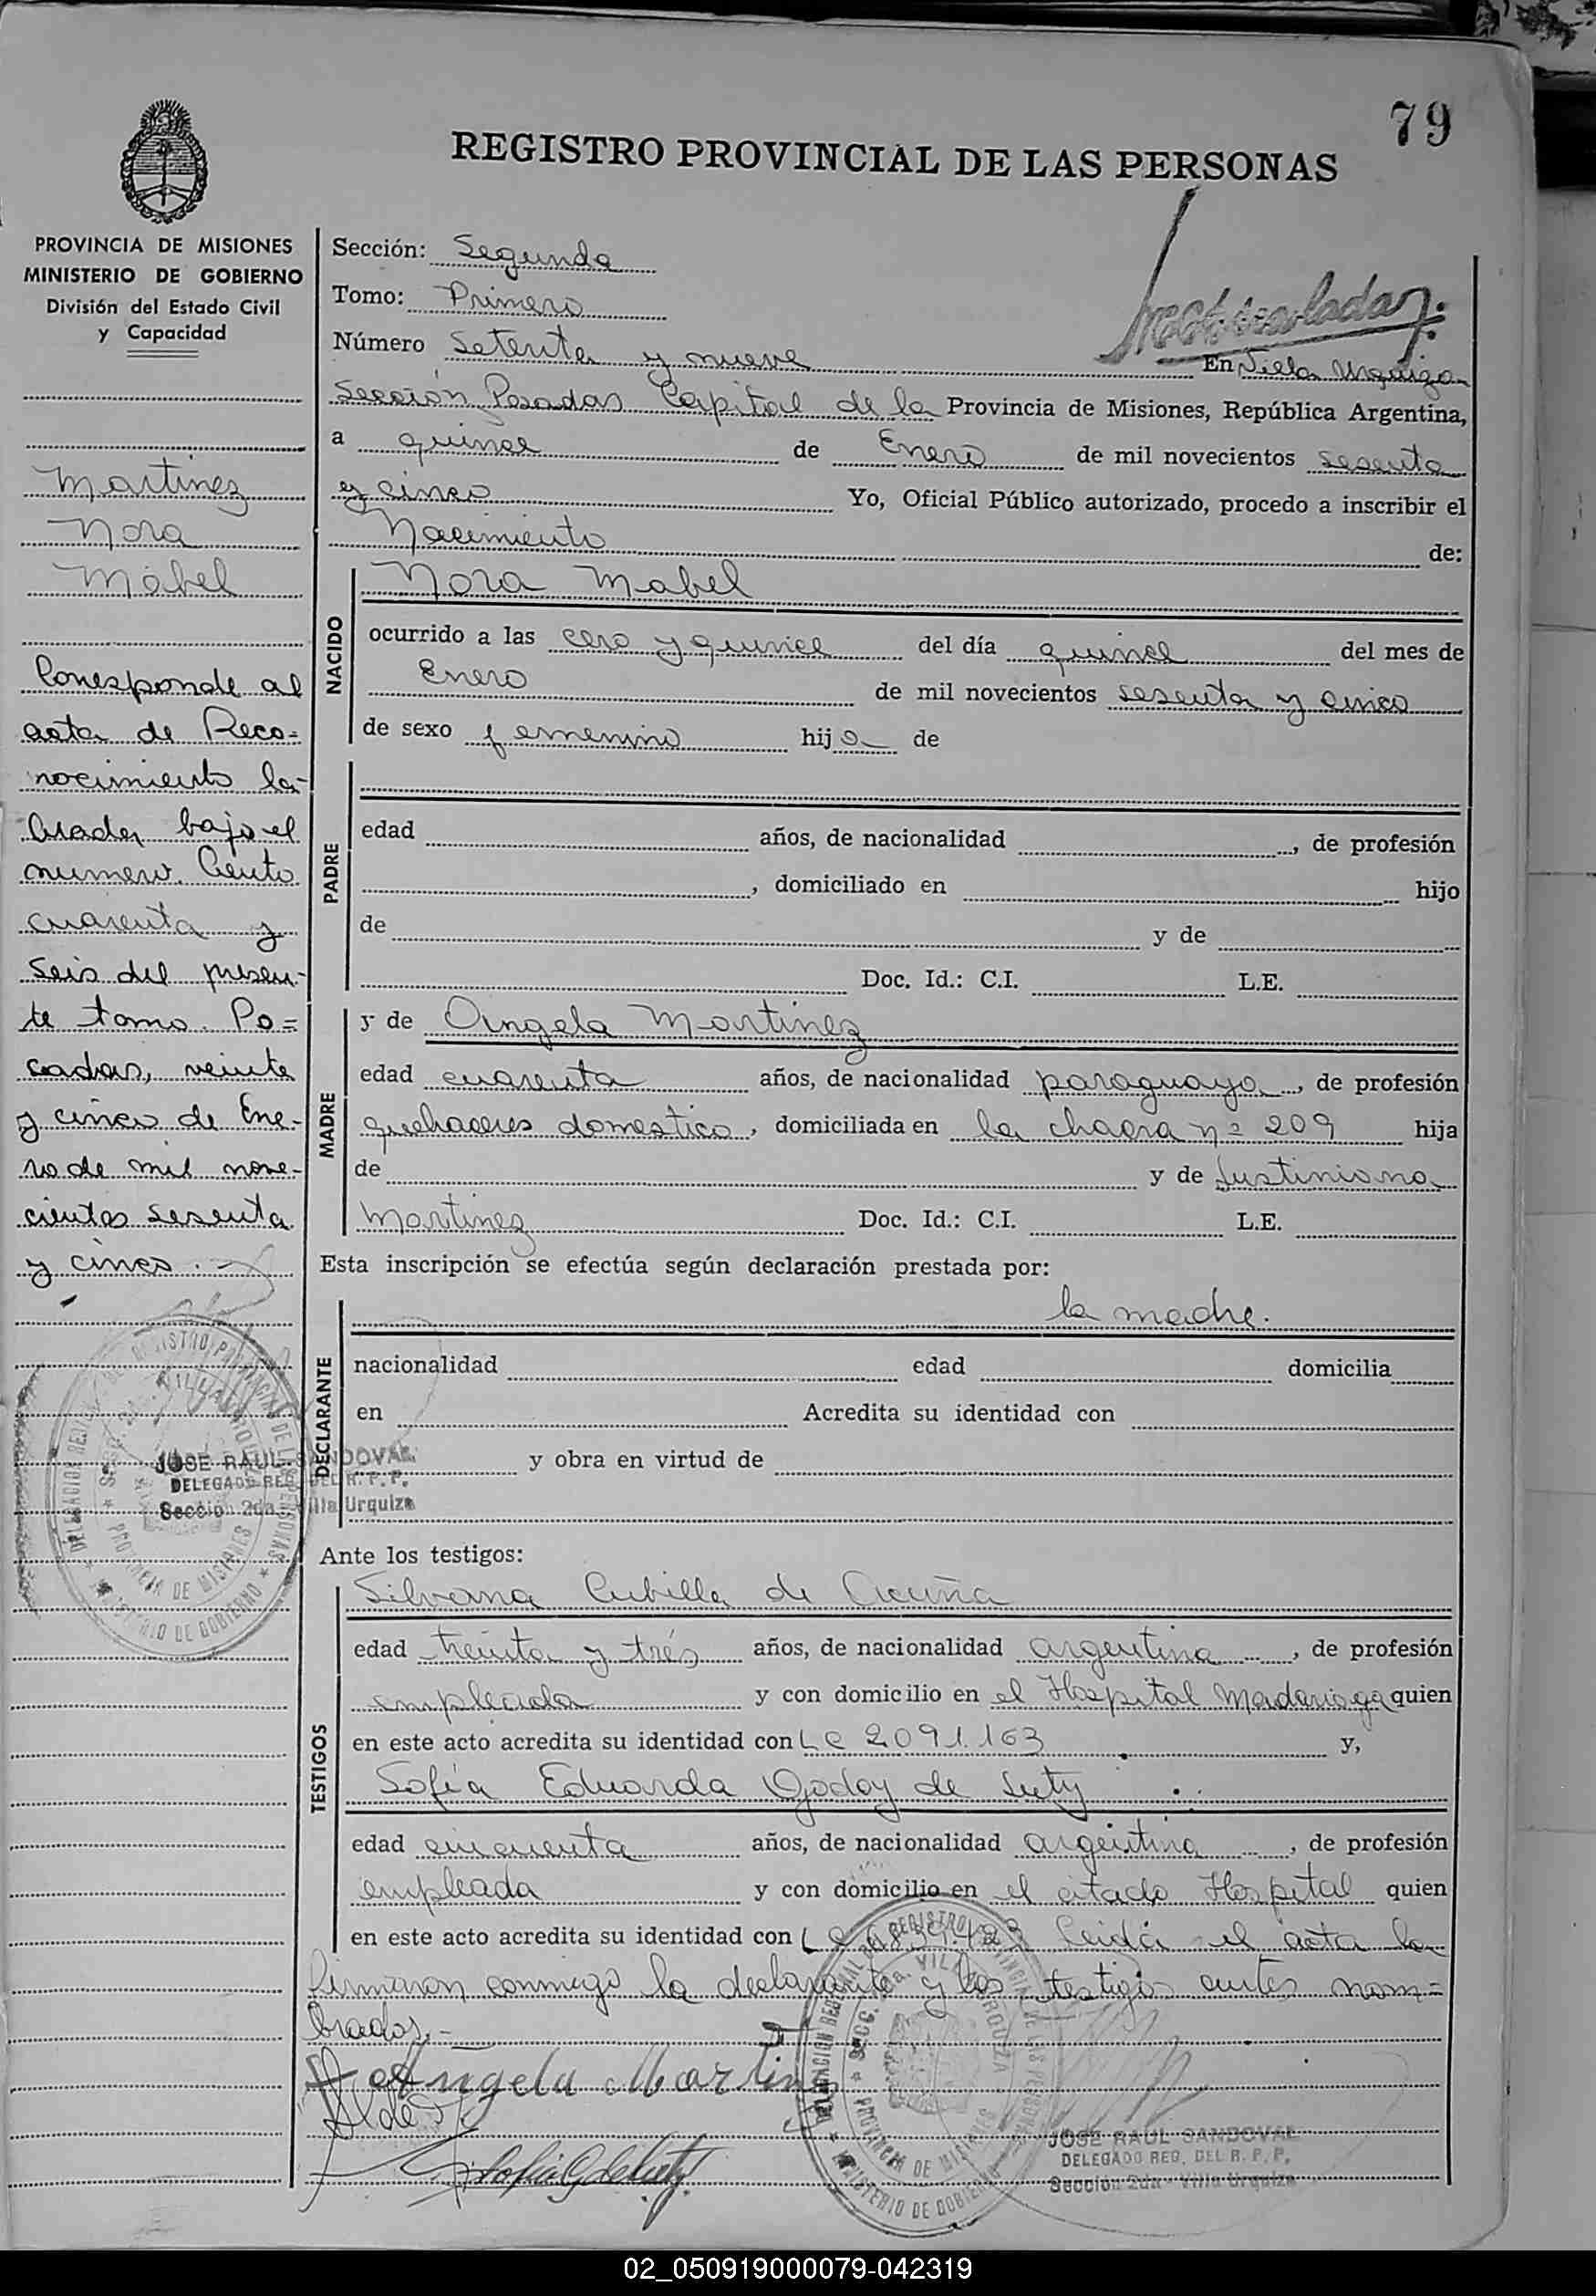 79
REGISTRO PROVINCIAL DE LAS PERSONAS
PROVINCIA DE MISIONES
MINISTERIO DE GOBIERNO
División del Estado Civil
y Capacidad
Martinez
Nora
Mabel
Corresponde al
acta de Reco=
nocimiento la-
brada bajo el
numero Ciento
cuarenta y
seis del presen-
te tomo. Po=
sadas, veinte
y cinco de Ene-
ro de mil nove-
cientos sesenta
y cinco.-
JOSE RAUL SANDOVAL
DELEGADO REG. DEL R. P. P.
Sección 2da - Villa Urquiza
Sección: Segunda
Tomo: Primero
Número Setenta y nueve En Villa Urquiza
Sección Posadas Capital de la Provincia de Misiones, República Argentina,
a quince de Enero de mil novecientos sesenta
y cinco Yo, Oficial Público autorizado, procedo a inscribir el
Nacimiento de:
NACIDO
Nora Mabel
ocurrido a las cero y quince del día quince del mes de
Enero de mil novecientos sesenta y cinco
de sexo femenino hija de
PADRE
edad años, de nacionalidad , de profesión
, domiciliado en hijo
de y de
Doc. Id.: C.I. L.E.
MADRE
y de Angela Martinez
edad cuarenta años, de nacionalidad paraguaya, de profesión
quehaceres domestico, domiciliada en la chacra nº 209 hija
de y de Justiniana
Martinez Doc. Id.: C.I. L.E.
Esta inscripción se efectúa según declaración prestada por:
la madre.
DECLARANTE
nacionalidad edad domicilia
en Acredita su identidad con
y obra en virtud de
Ante los testigos:
TESTIGOS
Silvana Cubilla de Acuña
edad treinta y trés años, de nacionalidad argentina, de profesión
empleada y con domicilio en el Hospital Madariaga quien
en este acto acredita su identidad con LC 2091.163 y,
Sofía Eduarda Godoy de
edad cincuenta años, de nacionalidad argentina, de profesión
empleada y con domicilio en el citado Hospital quien
en este acto acredita su identidad con LC Leida el acta la
firmaron conmigo la declarante y los testigos antes nom=
brados.-
Angela Martin
JOSE RAUL SANDOVAL
DELEGADO REG. DEL R. P. P.
Sección 2da - Villa Urquiza
02_050919000079-042319